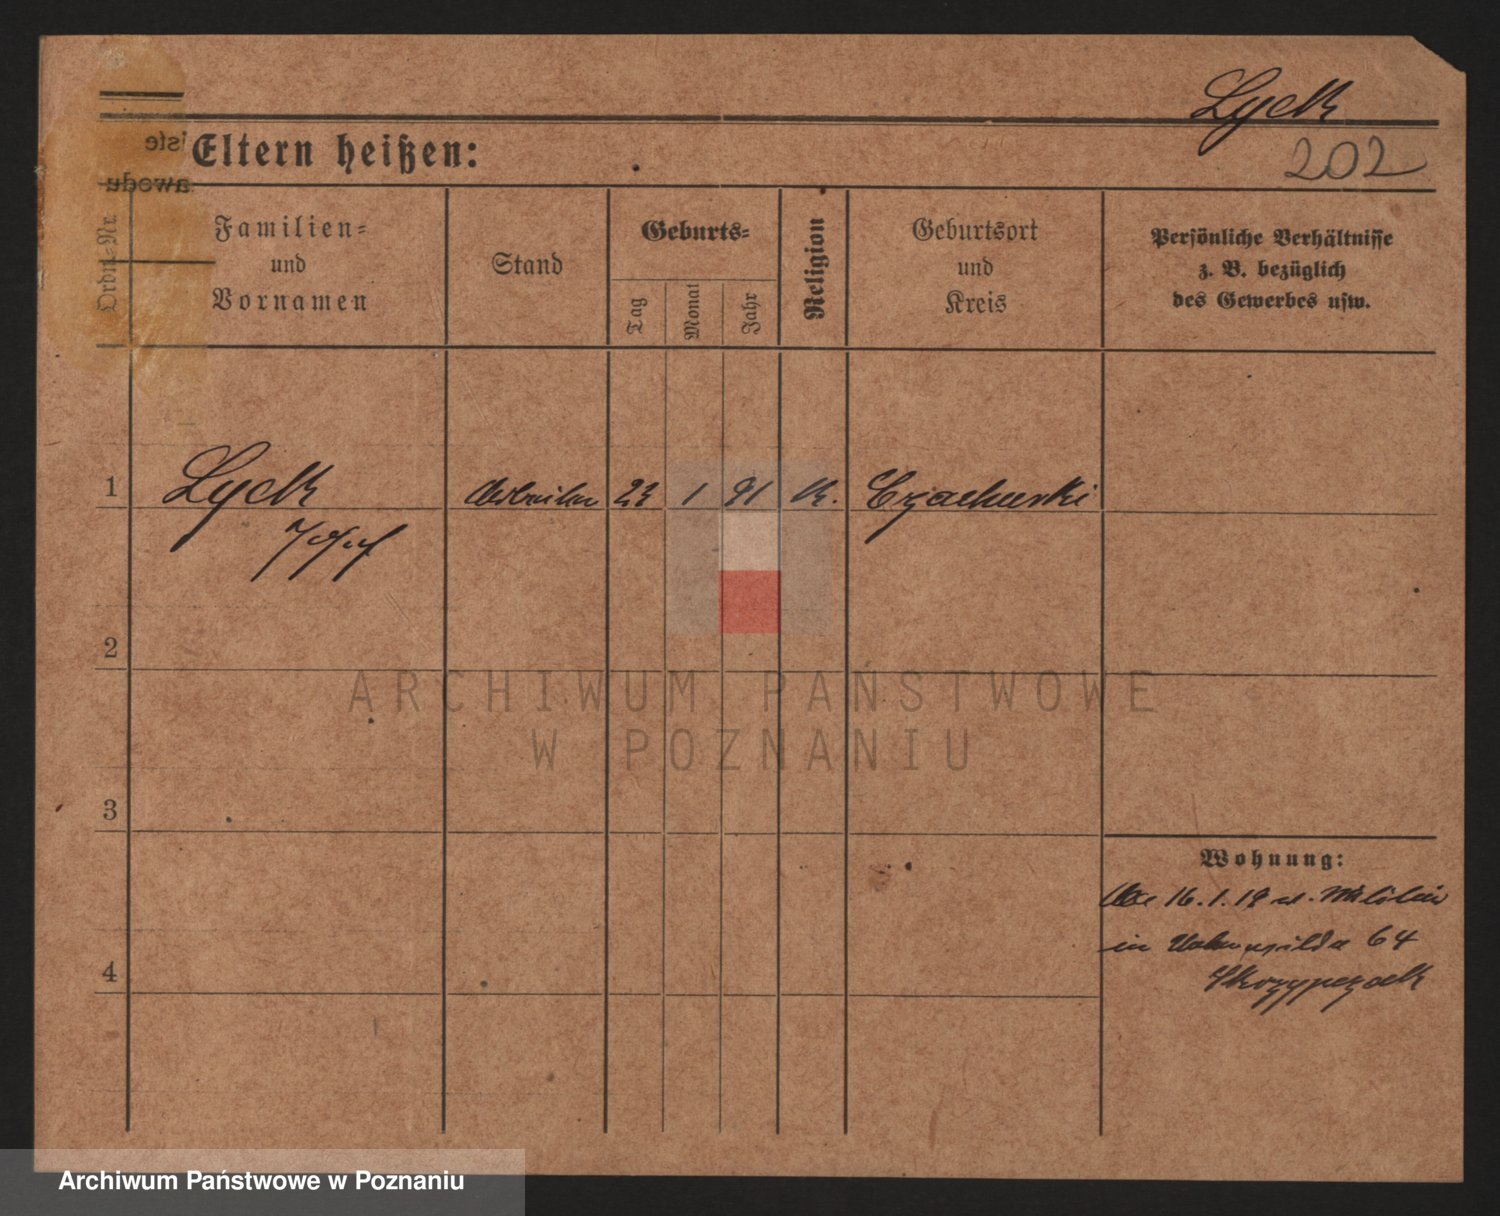 Lyck
202
Eltern heißen:
Ordn.=Nr.
Familien=
und
Vornamen
Stand
Geburts=
Tag
Monat
Jahr
Religion
Geburtsort
und
Kreis
Persönliche Verhältnisse
z. B. bezüglich
des Gewerbes usw.
1
Lyck
Arbeiter
23
1
91
k.
Czachurki
2
3
4
Wohnung:
16.1.19 v. Militär
in 64
Skrzypczak
ARCHIWUM PAŃSTWOWE
W POZNANIU
Archiwum Państwowe w Poznaniu